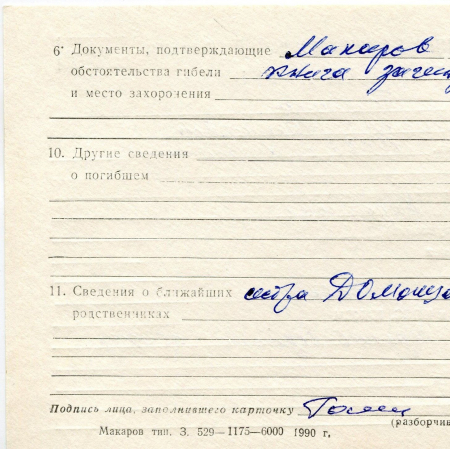 6. Документы, подтверждающие Макаров
обстоятельства гибели книга
и место захоронения
10. Другие сведения
о погибшем
11. Сведения о ближайших сестра
родственниках
Подпись лица, заполнившего карточку
(разборчив
Макаров тип. З. 529—1175—6000 1990 г.